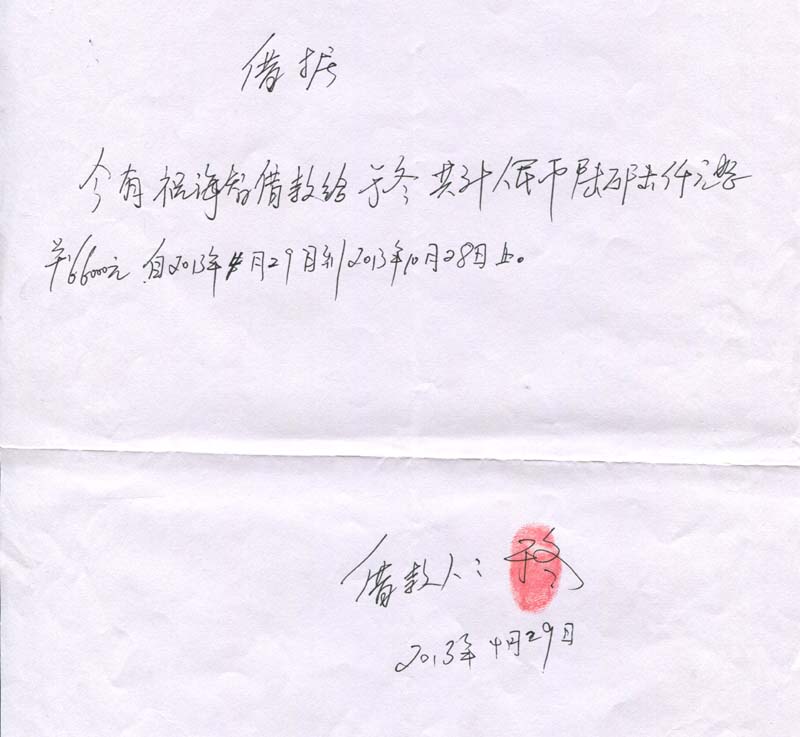 借据
今有祝海智借款给于冬共计人民币陆万陆仟元整
¥:66000元 自2013年4月29日到2013年10月28日止。
借款人：于冬
2013年4月29日